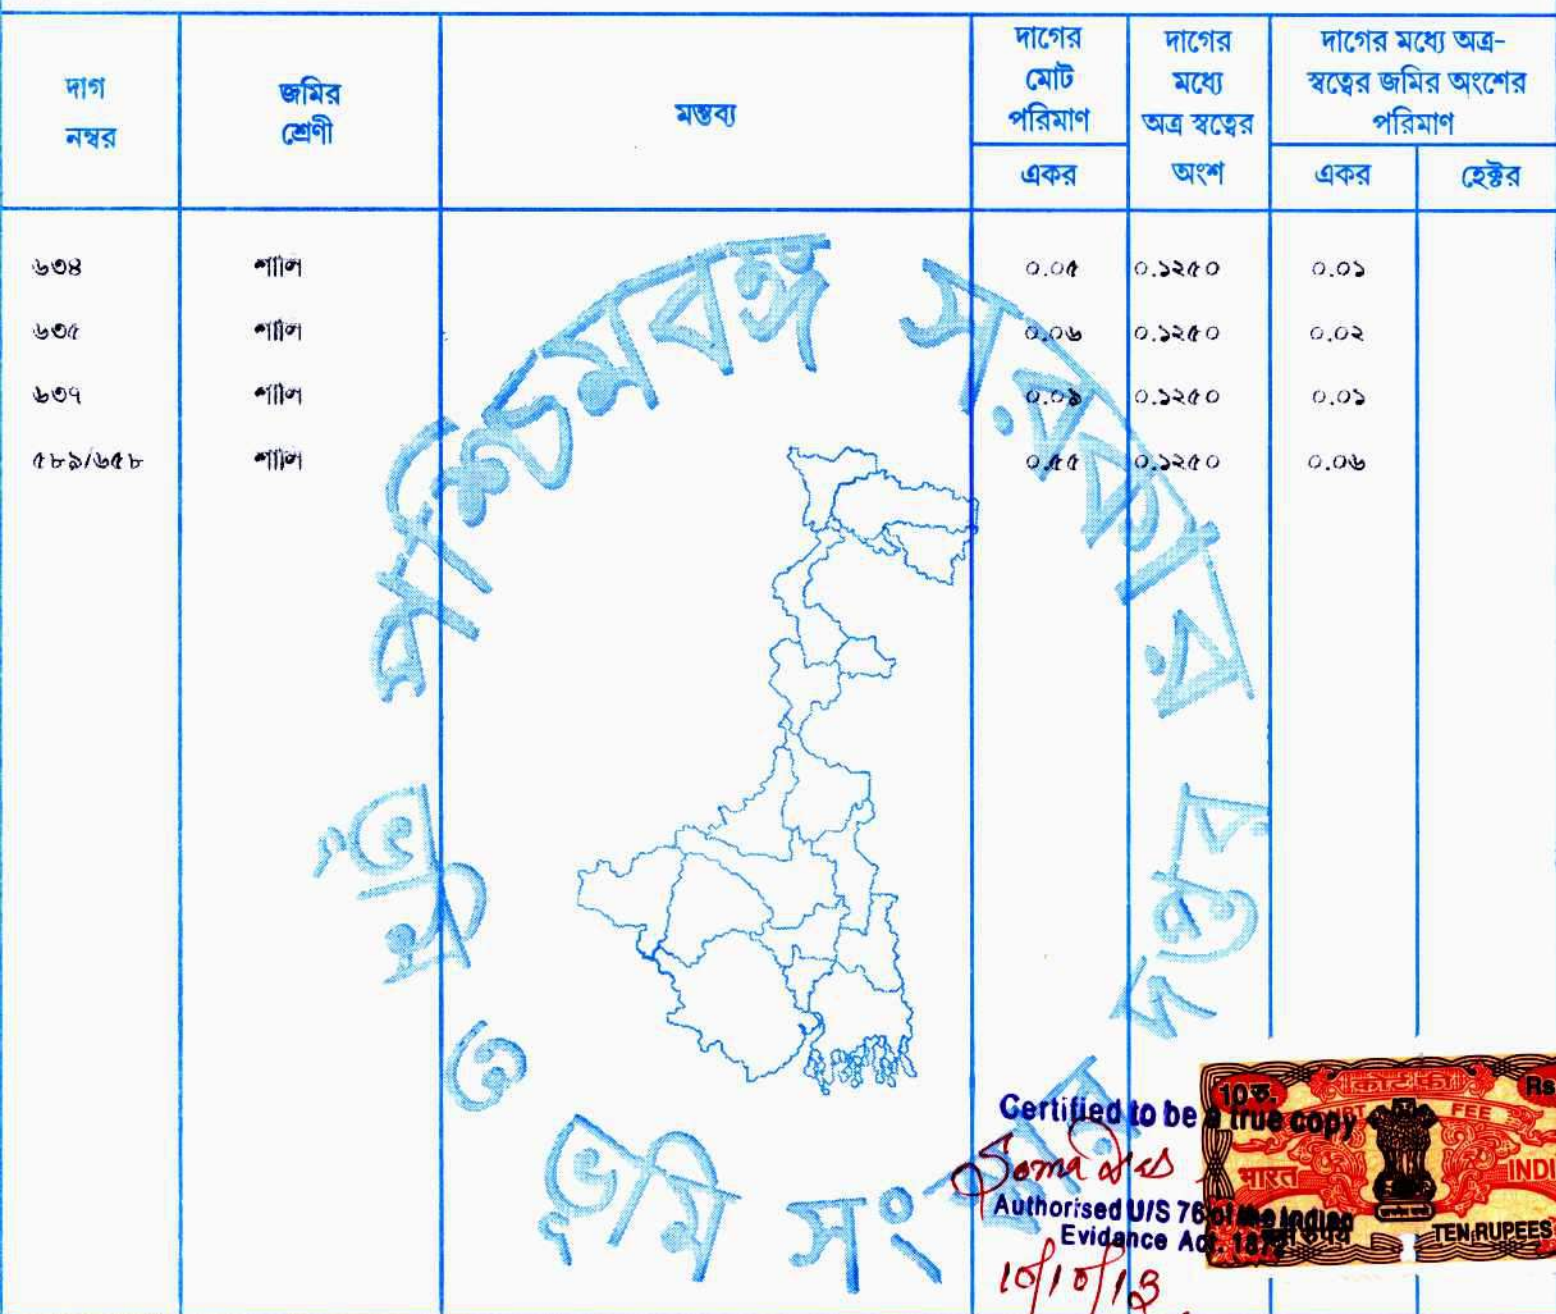 দাগ নম্বর | জমির শ্রেণী | মন্তব্য | দাগের মোট পরিমাণ একর | দাগের মধ্যে অত্র স্বত্বের অংশ | দাগের মধ্যে অত্র-স্বত্বের জমির অংশের পরিমাণ একর | হেক্টর
৬৩৪ শালি ০.০৫ ০.১২৫০ ০.০১
৬৩৫ শালি ০.০৬ ০.১২৫০ ০.০২
৬৩৭ শালি ০.০৯ ০.১২৫০ ০.০১
৫৮৯/৬৫৮ শালি ০.৫৫ ০.১২৫০ ০.০৬
পশ্চিমবঙ্গ সরকার
ভূমি ও ভূমি সংস্কার দপ্তর
Certified to be a true copy
Soma Das
Authorised U/S 76 of the Indian
Evidance Act. 1872
10/10/13
10 रु. कोर्ट फी Rs
FEE
भारत INDI
रुपये TEN RUPEES